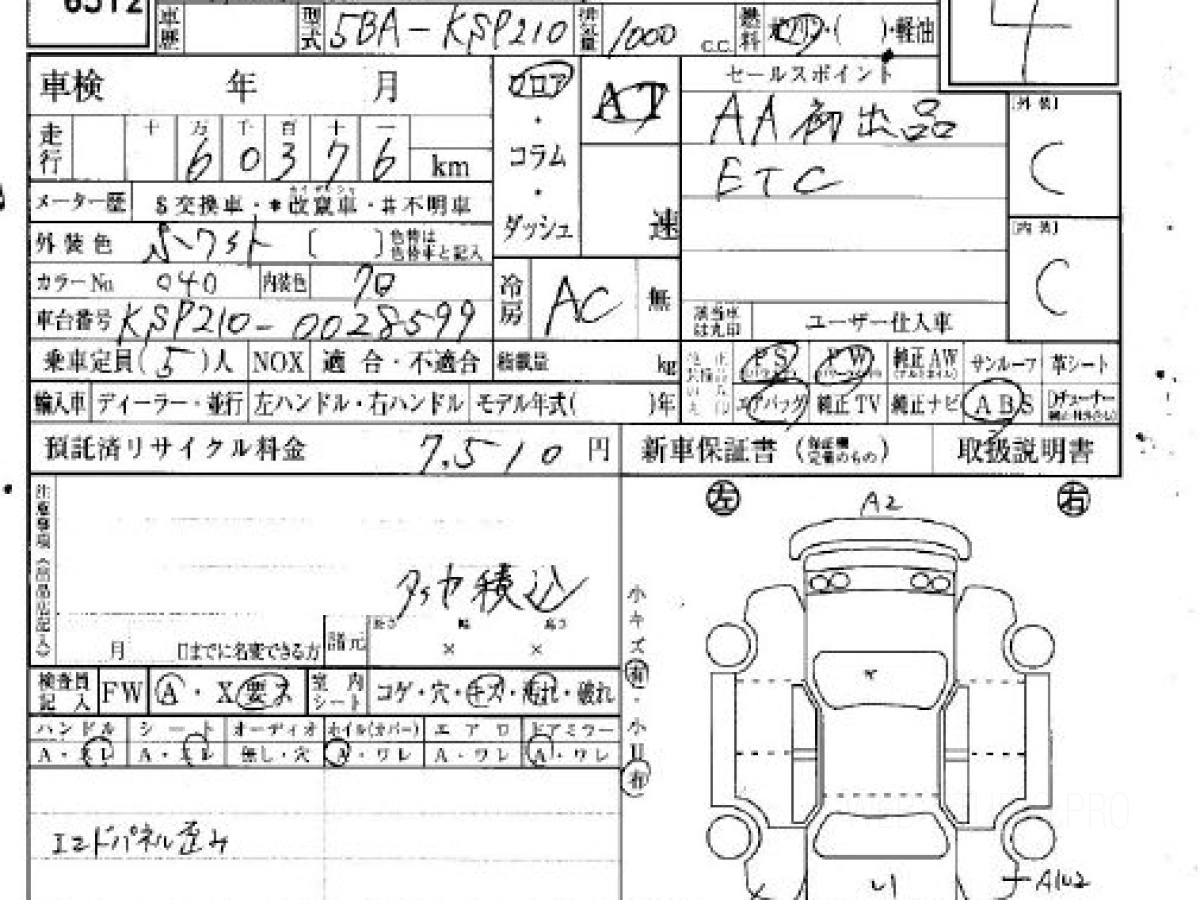 6512
車歴 型式 5BA-KSP210 排気量 1000 C.C. 燃料 ガソリン・( )・軽油 4
車検 年 月 フロア AT セールスポイント [外装]
・
走行 十 万 千 百 十 一 コラム AA初出品 C
6 0 3 7 6 km ・ ETC
メーター歴 $交換車・*改竄車・#不明車 ダッシュ 速 [内装]
外装色 ホワイト ( ) 色替は色替車と記入 C
カラーNo. 040 内装色 クロ 冷房 AC 無 該当車は丸印 ユーザー仕入車
車台番号 KSP210-0028599
乗車定員(5)人 NOX 適合・不適合 積載量 kg PS PW 純正AW サンルーフ 革シート
輸入車 ディーラー・並行 左ハンドル・右ハンドル モデル年式( )年 エアバッグ 純正TV 純正ナビ ABS
預託済リサイクル料金 7,510 円 新車保証書 取扱説明書
左 A2 右
注意事項《出品店記入》
タイヤ積込
月 日までに名変できる方 諸元 長さ × 幅 × 高さ
小キズ有・小凹有
検査員記入 FW A・X要ス 室内シート コゲ・穴・キズ・汚れ・破れ
ハンドル シート オーディオ ホイル(カバー) エアロ ドアミラー
A・スレ A・スレ 無し・穴 A・ワレ A・ワレ A・ワレ
エンドパネル歪み
A1U2